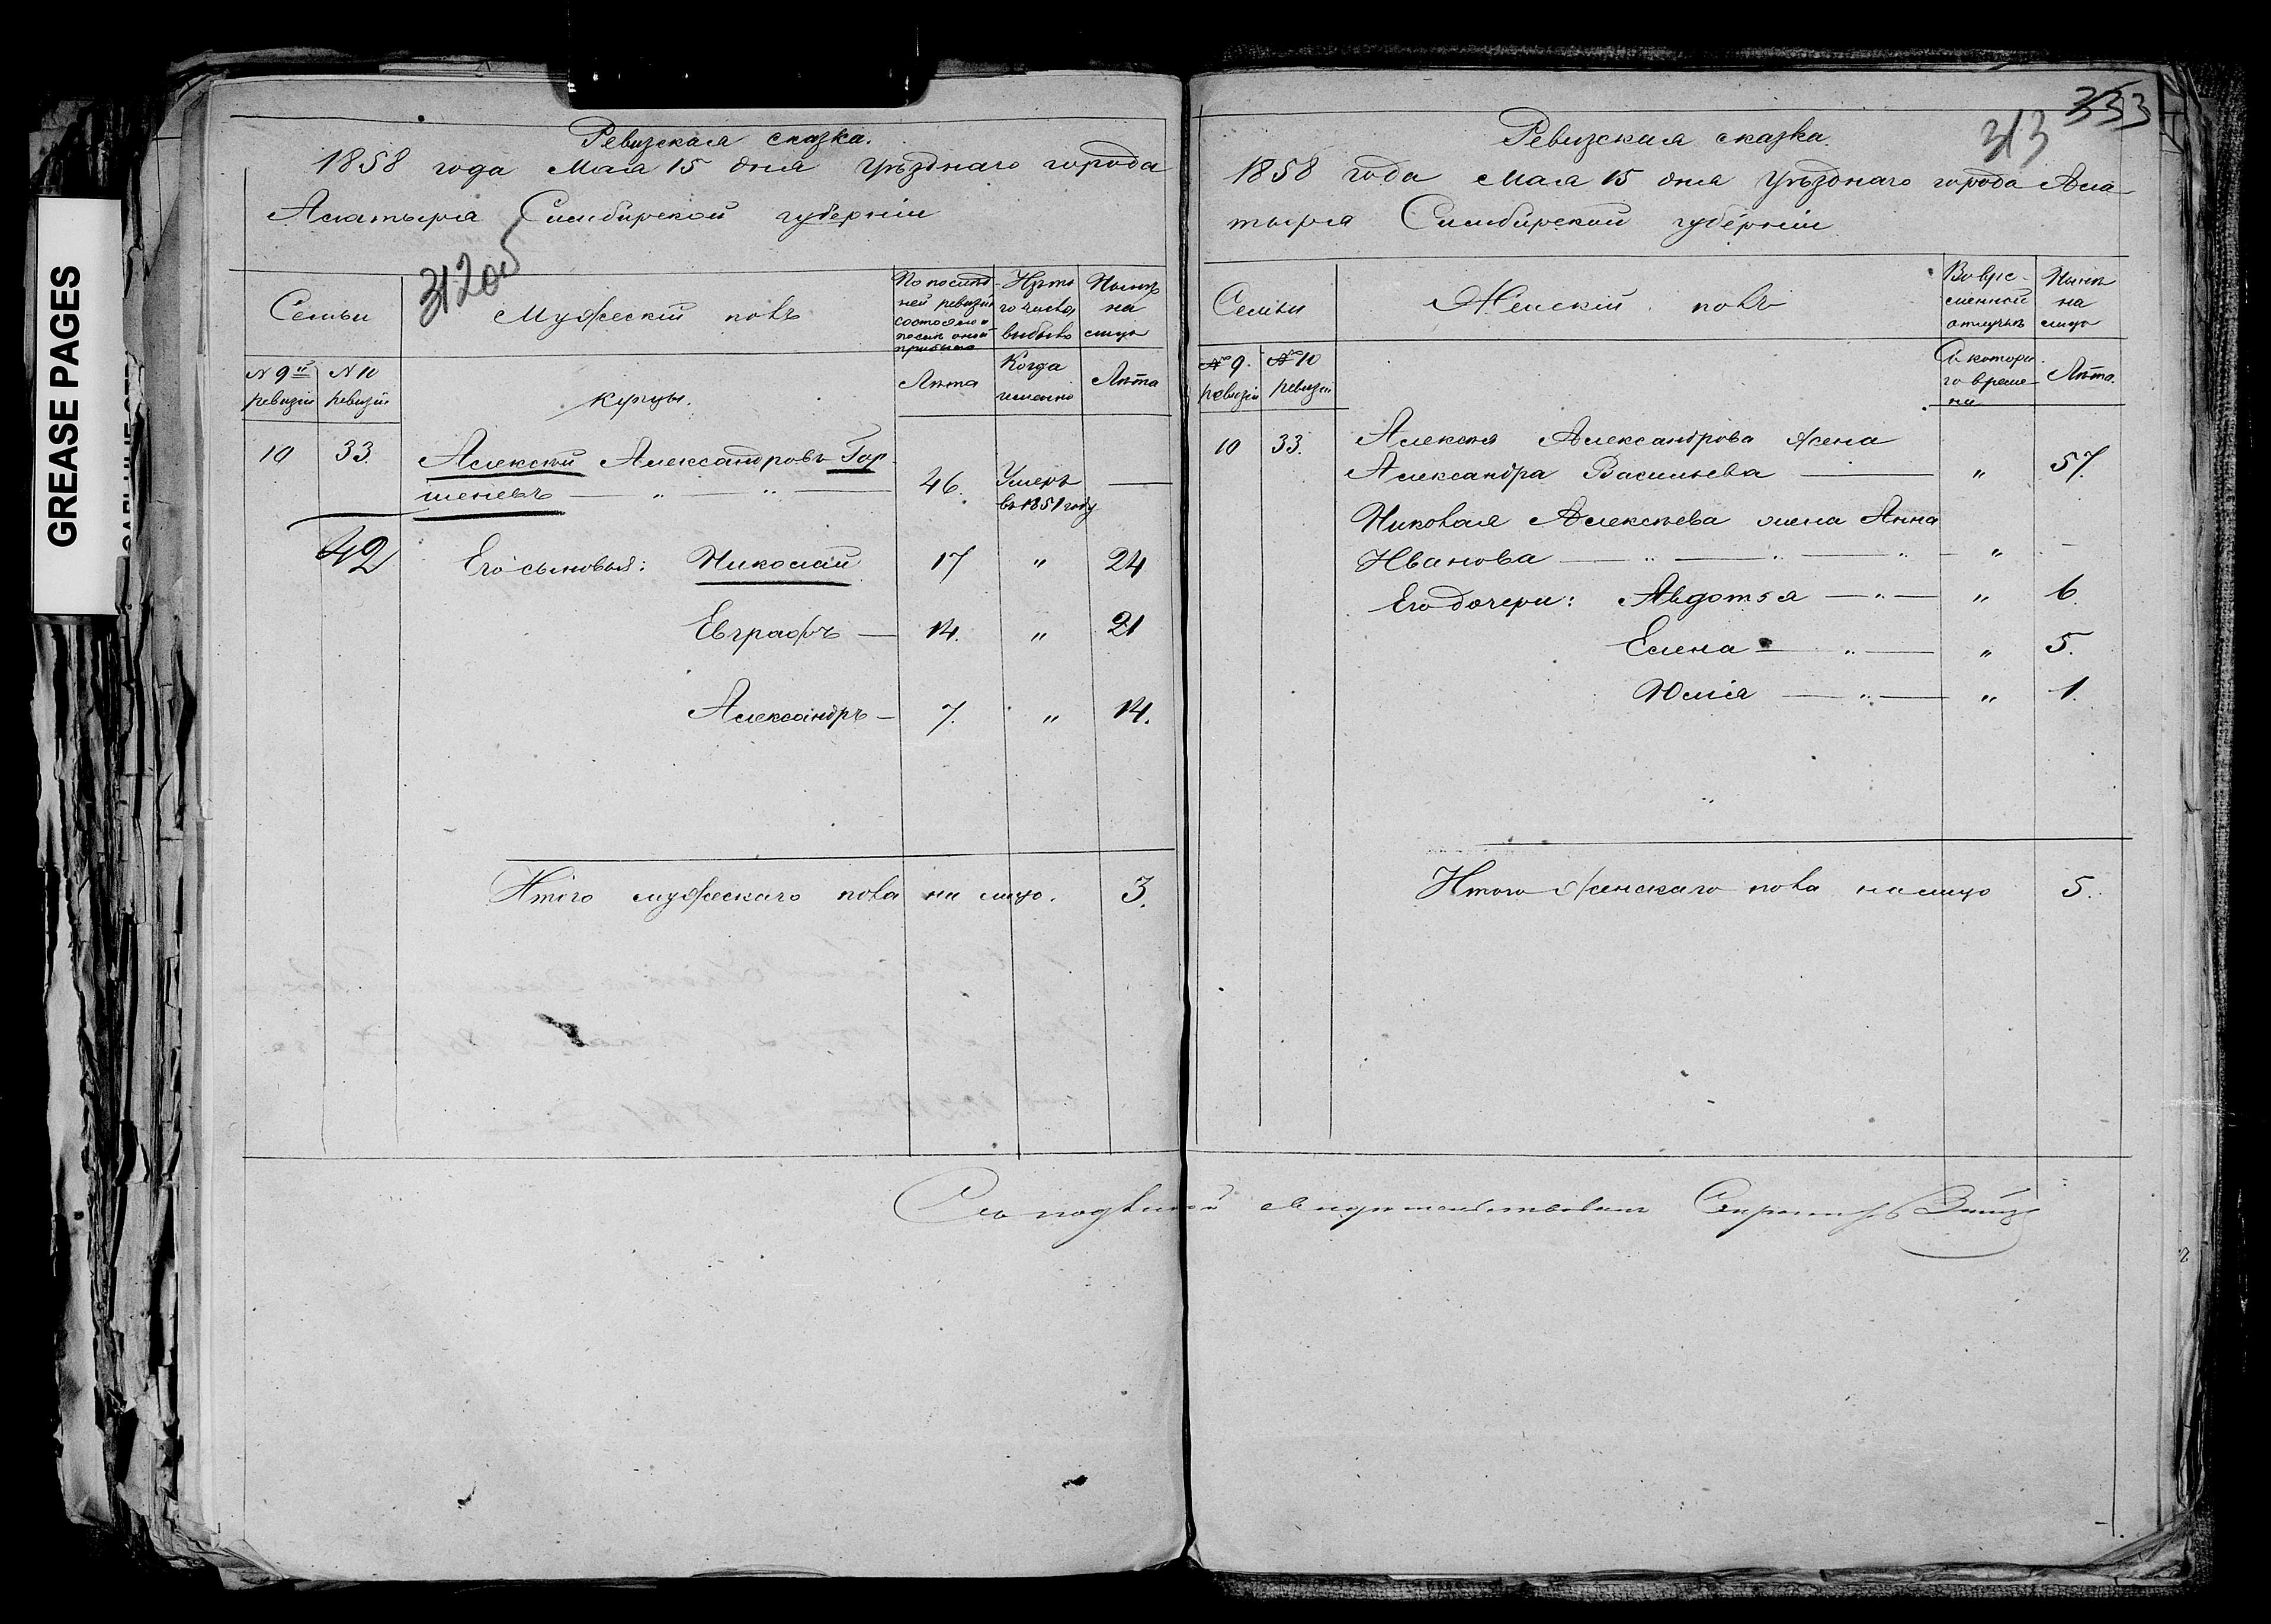 GREASE PAGES
Ревизская сказка.
1858 года Мая 15 дня Уѣзднаго города
Алатыря Симбирской губерніи
312об
Семьи
Мужескій полъ
По послѣд-
ней ревизіи
состояло и
послѣ оной
прибыло
Изъ то
го числа
выбыло
Нынѣ
на
лицо
N 9й
ревизіи
N 10
ревизіи
купцы.
Лѣта
Когда
именно
Лѣта
10 33. Алексѣй Александровъ Гор
шеневъ 46. Умеръ
въ 1851 году
42 Его сыновья: Николай 17 " 24
Евграфъ 14. " 21
Александръ 7. " 14.
Итого мужескаго пола на лицо. 3.
333
313
Ревизская сказка.
1858 года Мая 15 дня Уѣзднаго города Ала-
тыря Симбирской губерніи
Семьи
Женскій полъ
Во вре-
менной
отлучкѣ
Нынѣ
на
лицо
№ 9.
ревизіи
№ 10
ревизіи
Съ котора
го време
ни
Лѣта.
10 33. Алексѣя Александрова жена
Александра Васильева " 57.
Николая Алексѣева жена Анна
Иванова " —
Его дочери: Авдотья " 6.
Елена " 5.
Юлія " 1.
Итого женскаго пола на лицо 5.